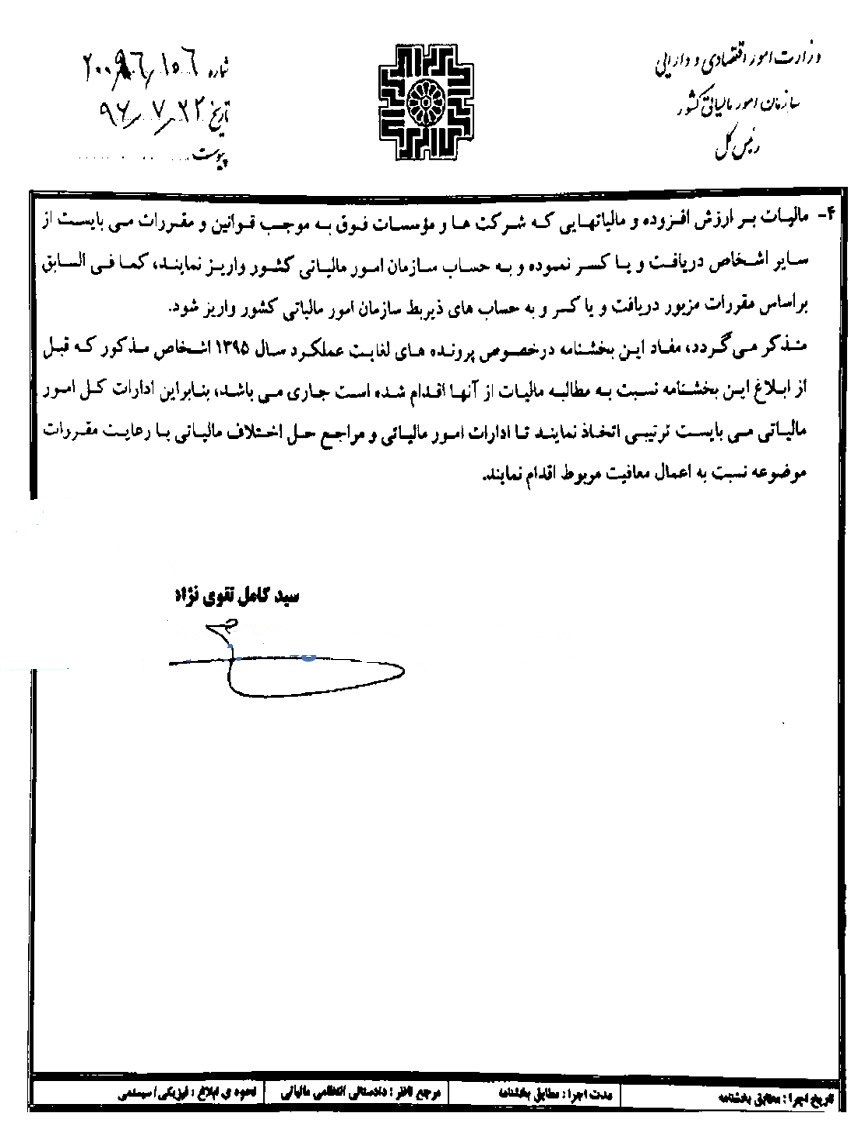 وزارت امور اقتصادی و دارایی
سازمان امور مالیاتی کشور
رئیس کل
شماره
تاریخ ۹۶/۷/۲۲
پیوست
۴- مالیات بر ارزش افزوده و مالیاتهایی که شرکت ها و مؤسسات فوق به موجب قوانین و مقررات می بایست از
سایر اشخاص دریافت و یا کسر نموده و به حساب سازمان امور مالیاتی کشور واریز نمایند، کما فی السابق
براساس مقررات مزبور دریافت و یا کسر و به حساب های ذیربط سازمان امور مالیاتی کشور واریز شود.
متذکر می گردد، مفاد این بخشنامه درخصوص پرونده های لغایت عملکرد سال ۱۳۹۵ اشخاص مذکور که قبل
از ابلاغ این بخشنامه نسبت به مطالبه مالیات از آنها اقدام شده است جاری می باشد، بنابراین ادارات کل امور
مالیاتی می بایست ترتیبی اتخاذ نمایند تا ادارات امور مالیاتی و مراجع حل اختلاف مالیاتی با رعایت مقررات
موضوعه نسبت به اعمال معافیت مربوط اقدام نمایند.
سید کامل تقوی نژاد
تاریخ اجرا : مطابق بخشنامه
مدت اجرا : مطابق بخشنامه
مرجع ناظر : دادستانی انتظامی مالیاتی
نحوه ی ابلاغ : فیزیکی/سیستمی